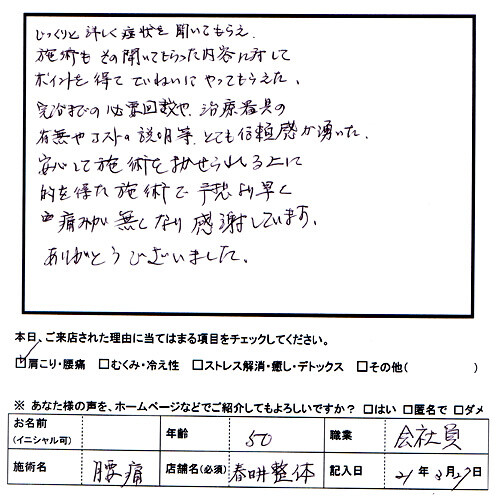 じっくりと詳しく症状を聞いてもらえ、
施術もその聞いてもらった内容に対して
ポイントを得てていねいにやってもらえた。
完治までの必要回数や、治療器具の
有無やコストの説明等、とても信頼感が湧いた。
安心して施術を任せられる上に
的を得た施術で予想より早く
痛みが無くなり感謝しています。
ありがとうございました。
本日、ご来店された理由に当てはまる項目をチェックしてください。
☑肩こり・腰痛 □むくみ・冷え性 □ストレス解消・癒し・デトックス □その他( )
※ あなた様の声を、ホームページなどでご紹介してもよろしいですか? □はい □匿名で □ダメ
お名前 (イニシャル可) 年齢 50 職業 会社員
施術名 腰痛 店舗名(必須) 春畊整体 記入日 21年 月27日